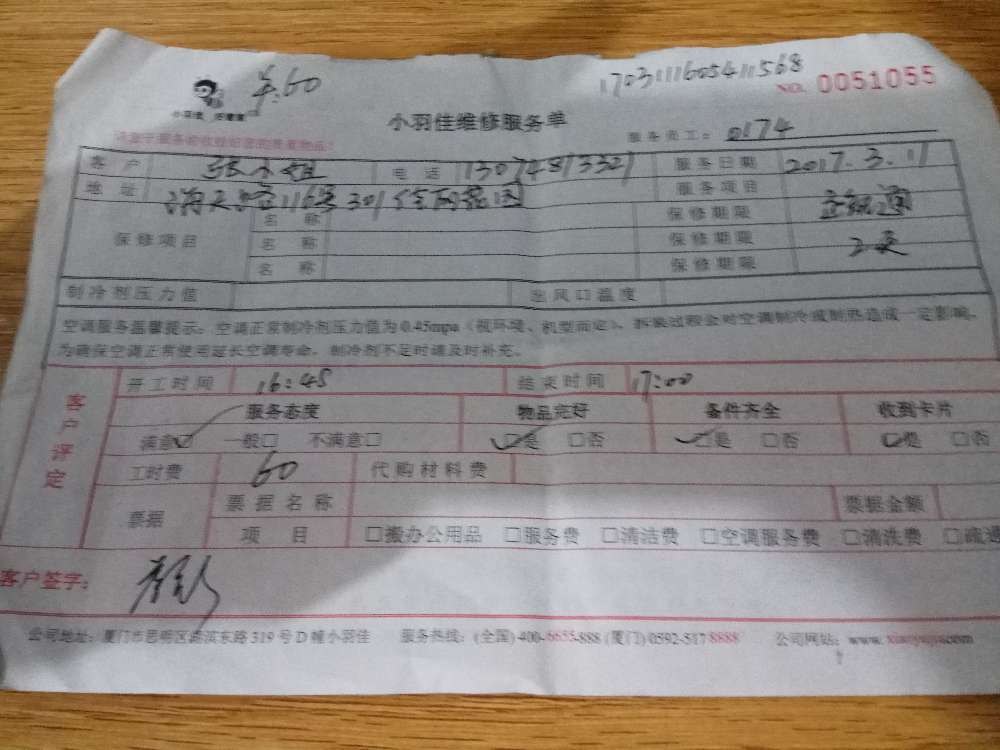 羊:60
170311160541​1568
NO. 0051055
小羽佳维修服务单
服务员工: 0174
客户 张小姐 电话 13074813321 服务日期 2017.3.11
地址 116 301 服务项目
保修项目 名称 保修期限
名称 保修期限
名称 保修期限
制冷剂压力值 出风口温度
空调服务温馨提示:空调正常制冷剂压力值为0.45mpa(视环境、机型而定)、拆装过程会对空调制冷或制热造成一定影响,
为确保空调正常使用延长空调寿命,制冷剂不足时请及时补充。
客户评定
开工时间 16:45 结束时间 17:00
服务态度 物品完好 备件齐全 收到卡片
满意☑ 一般□ 不满意□ ☑是 □否 ☑是 □否 ☑是 □否
工时费 60 代购材料费
票据 票据名称 票据金额
项目 □搬办公用品 □服务费 □清洁费 □空调服务费 □清洗费 □疏通
客户签字:
公司地址:厦门市思明区 319号D幢小羽佳 服务热线:(全国)400-6655-888 (厦门)0592-5178888 公司网站:www.xiaoyujia.com